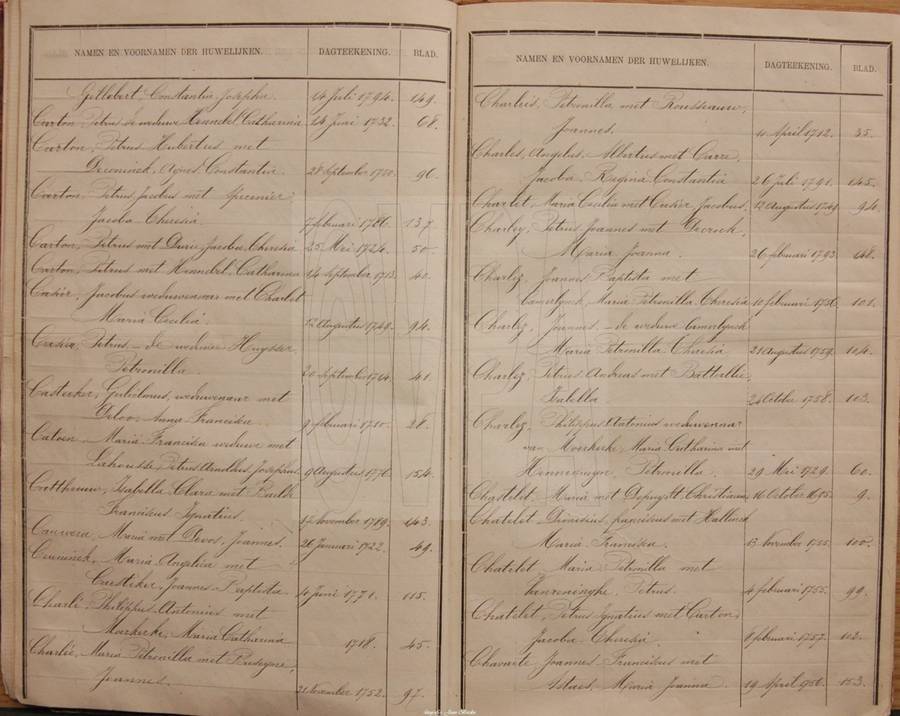 NAMEN EN VOORNAMEN DER HUWELIJKEN. DAGTEEKENING. BLAD.
Gillebert, Constantia Josepha 14 Juli 1794. 149.
Carton Petrus de weduwe Henndel Catharina 14 Juni 1732. 68.
Carton, Petrus Hubertus met
Deconinck, Agnes Constantia. 28 September 1750. 96.
Carton, Petrus Jacobus met
Jacoba Theresia. 7 februari 1786. 137.
Carton, Petrus met Jacoba Theresia 25 Mei 1724. 50.
Carton, Petrus met Henndel Catharina 24 September 1713. 40.
Casier, Jacobus weduwenaar met Charlet
Maria Cecilia. 12 Augustus 1749. 94.
Petrus, de weduwe Huysser,
Petronilla. 20 September 1764. 41.
Gulielmus, weduwenaar met
Anna Francisca. 9 februari 1710. 28.
Catoen Maria Francisca weduwe met
Petrus Josephus 9 Augustus 1776. 154.
Isabella Clara met
Franciscus Ignatius. 17 November 1789. 143.
Cauwera, Maria met Devos, Joannes. 26 Januari 1722. 49.
Ceuninck, Maria Angelica met
Joannes Baptista. 4 Juni 1771. 115.
Charle Philippus Antonius met
Maria Catharina 1718. 45.
Charlee, Maria Petronilla met
Joannes. 21 November 1752. 97.
NAMEN EN VOORNAMEN DER HUWELIJKEN. DAGTEEKENING. BLAD.
Charleis, Petronilla met Rousseauw,
Joannes. 11 April 1712. 35.
Charles, Angelus Albertus met Carre,
Jacoba Regina Constantia 26 Juli 1791. 145.
Charlet, Maria Cecilia met Casier Jacobus, 12 Augustus 1749. 94.
Charley, Petrus Joannes met
Maria Joanna. 26 februari 1793. 148.
Charlez, Joannes Baptista met
Camerlynck, Maria Petronilla Theresia 10 februari 1756. 101.
Charlez, Joannes de weduwe Camerlynck
Maria Petronilla Theresia 21 Augustus 1759. 104.
Charlez, Petrus Andreas met Battellie,
Isabella 24 October 1758. 103.
Charlez, Philippus Antonius weduwenaar
van Maria Catharina met
Petronilla. 29 Mei 1729. 60.
Chastelet, Maria met Christiaen, 16 October 1685. 9.
Chatelet Dionisius, franciscus met
Maria Francisca. 13 November 1755. 100.
Chatelet, Maria Petronilla met
Petrus. 4 februari 1755. 99.
Chatelet, Petrus Ignatius met Carton,
Jacoba Theresia. 8 februari 1757. 102.
Joannes Franciscus met
Maria Joanna. 19 April 153.